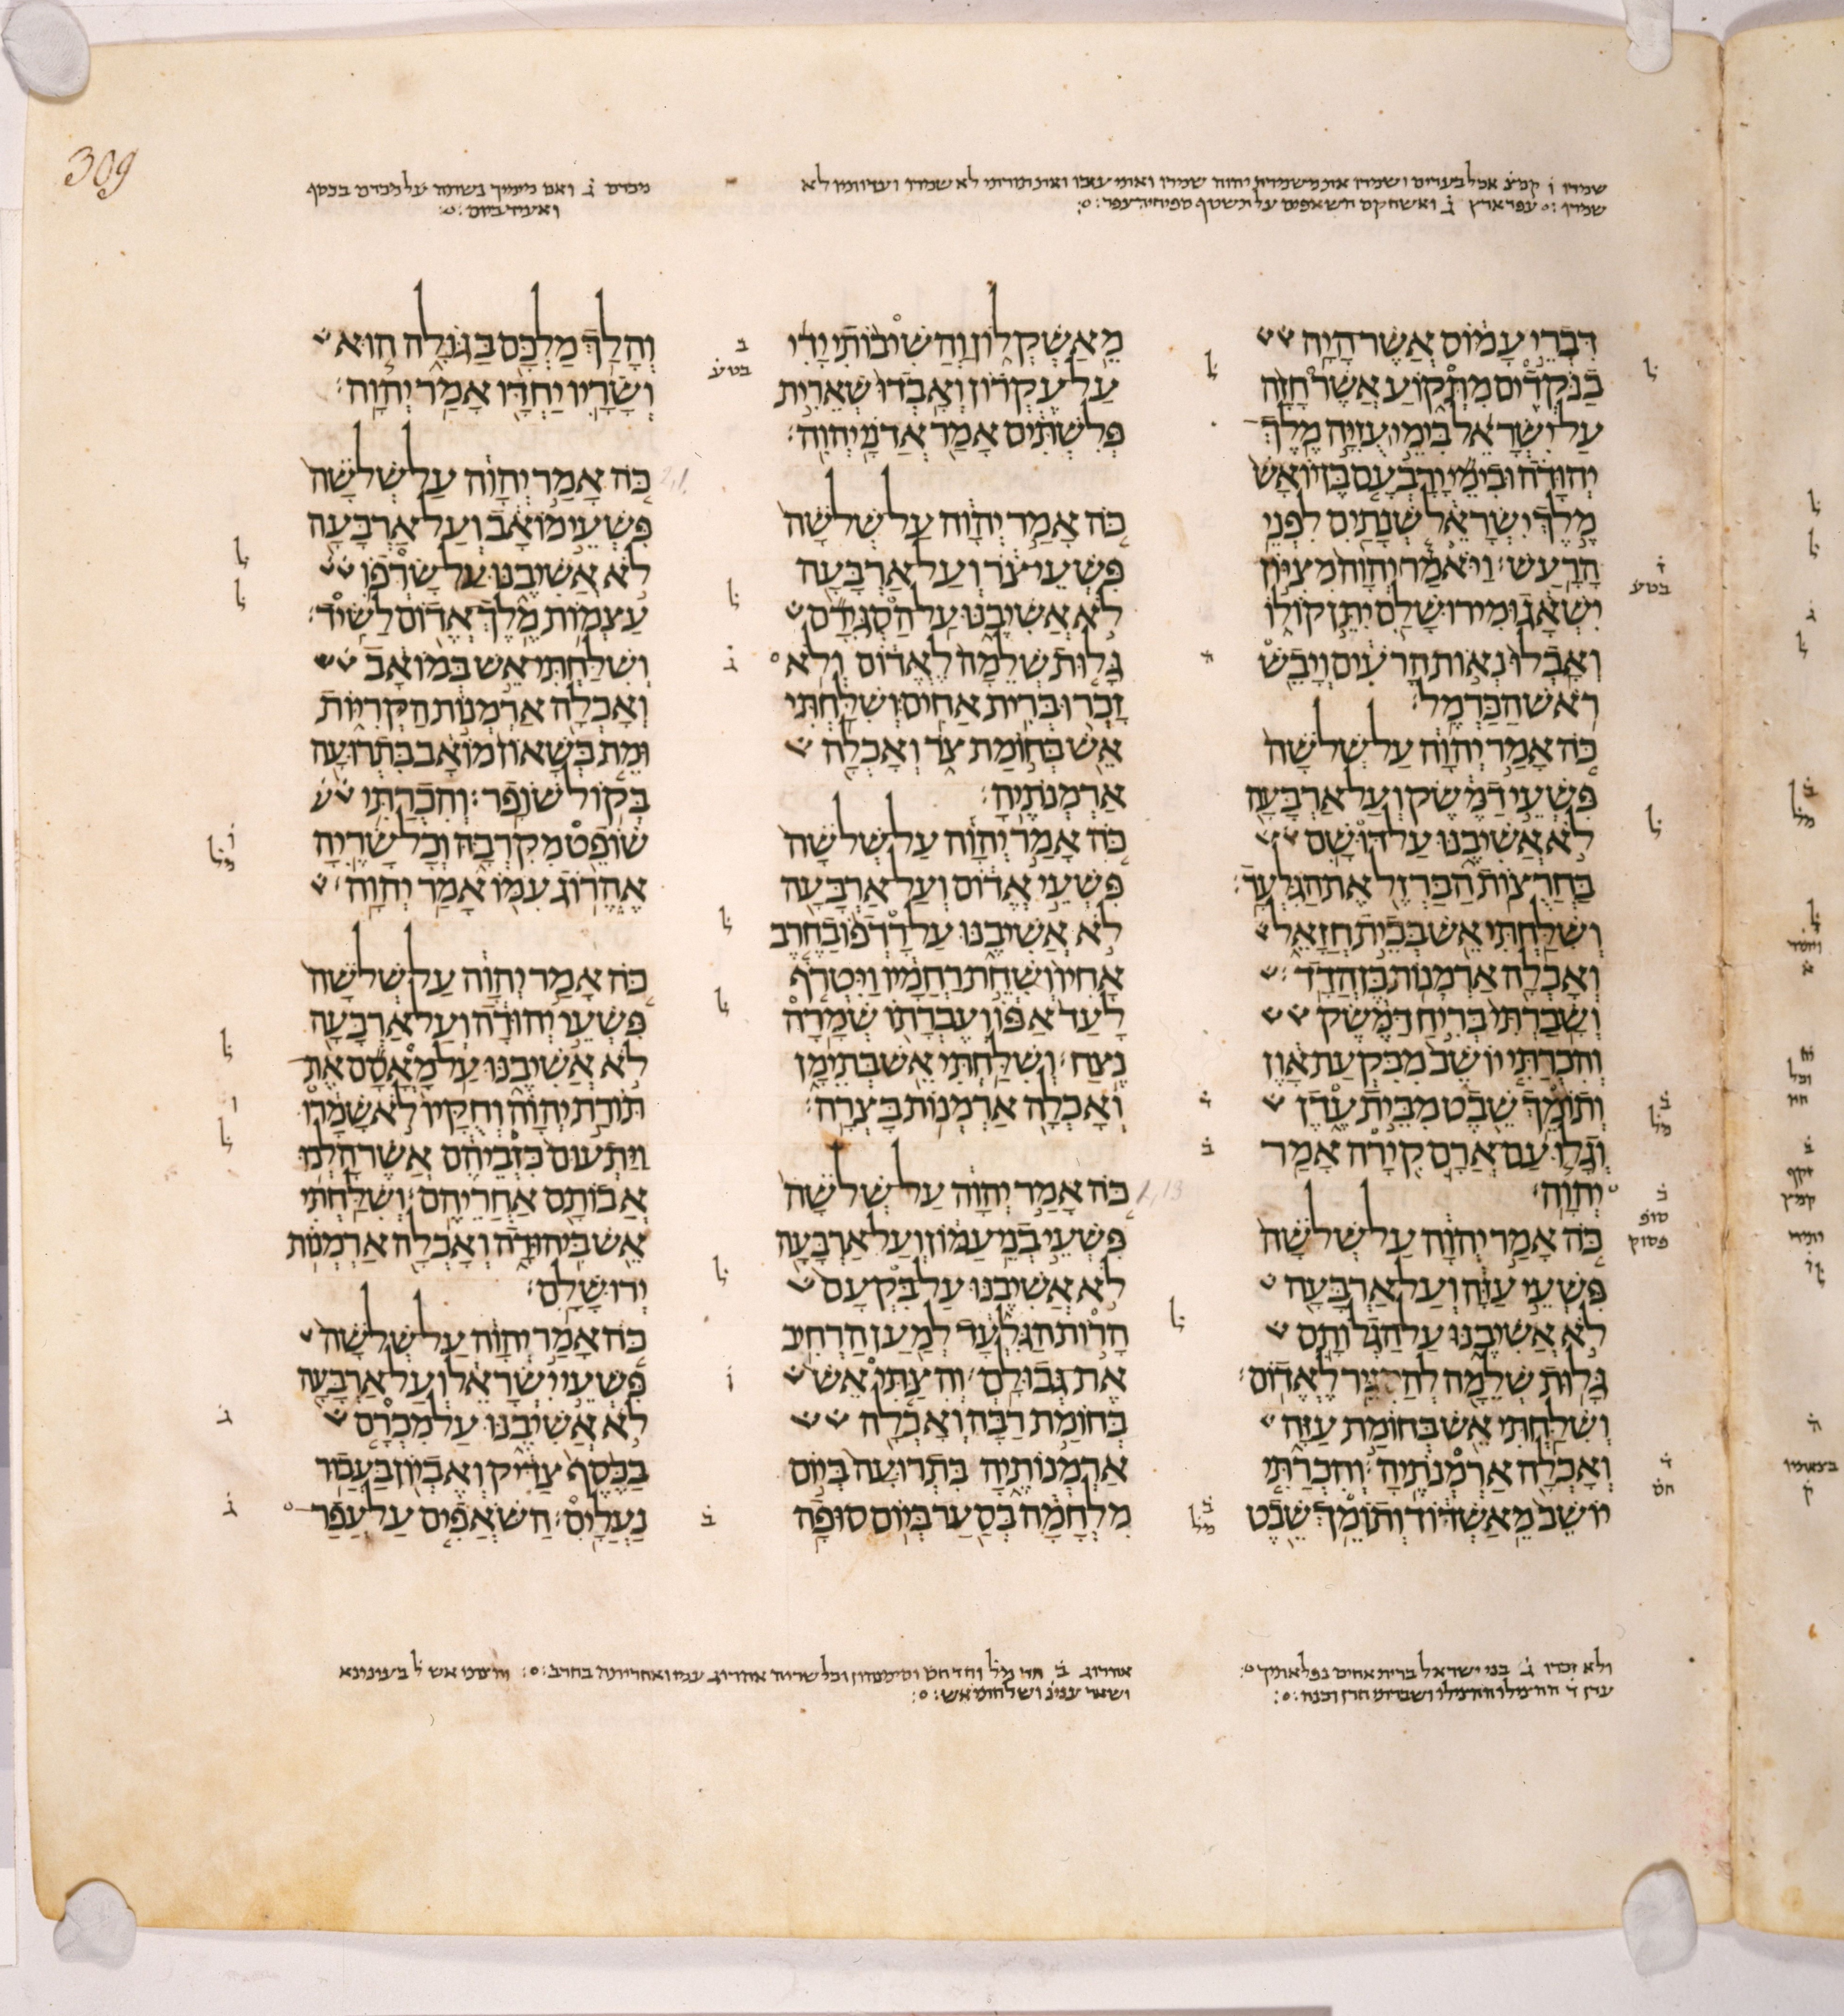 309
שמרו ו קמצ אכל בערים ושמרו את משמרת יהוה שמרו ואתי עזבו ואת תורתי לא שמרו ועדותיו לא
שמרו : עפר ארץ ב ואשחקם השאפים על תשטף ספיחיה עפר :
מכרם ג ואם על מכרם בכסף
ואעיד ביום :
דִּבְרֵי עָמוֹס אֲשֶׁר הָיָה
בַנֹּקְדִים מִתְּקוֹעַ אֲשֶׁר חָזָה
עַל יִשְׂרָאֵל בִּימֵי עֻזִיָּה מֶלֶךְ
יְהוּדָה וּבִימֵי יָרָבְעָם בֶּן יוֹאָשׁ
מֶלֶךְ יִשְׂרָאֵל שְׁנָתַיִם לִפְנֵי
הָרָעַשׁ׃ וַיֹּאמַר יְהוָה מִצִּיּוֹן
יִשְׁאָג וּמִירוּשָׁלִַם יִתֵּן קוֹלוֹ
וְאָבְלוּ נְאוֹת הָרֹעִים וְיָבֵשׁ
רֹאשׁ הַכַּרְמֶל׃
כֹּה אָמַר יְהוָה עַל שְׁלֹשָׁה
פִּשְׁעֵי דַמֶּשֶׂק וְעַל אַרְבָּעָה
לֹא אֲשִׁיבֶנּוּ עַל דּוּשָׁם
בַּחֲרֻצוֹת הַבַּרְזֶל אֶת הַגִּלְעָד׃
וְשִׁלַּחְתִּי אֵשׁ בְּבֵית חֲזָאֵל
וְאָכְלָה אַרְמְנוֹת בֶּן הֲדָד׃
וְשָׁבַרְתִּי בְּרִיחַ דַּמֶּשֶׂק
וְהִכְרַתִּי יוֹשֵׁב מִבִּקְעַת אָוֶן
וְתוֹמֵךְ שֵׁבֶט מִבֵּית עֶדֶן
וְגָלוּ עַם אֲרָם קִירָה אָמַר
יְהוָה׃
כֹּה אָמַר יְהוָה עַל שְׁלֹשָׁה
פִּשְׁעֵי עַזָּה וְעַל אַרְבָּעָה
לֹא אֲשִׁיבֶנּוּ עַל הַגְלוֹתָם
גָּלוּת שְׁלֵמָה לְהַסְגִּיר לֶאֱדוֹם׃
וְשִׁלַּחְתִּי אֵשׁ בְּחוֹמַת עַזָּה
וְאָכְלָה אַרְמְנֹתֶיהָ׃ וְהִכְרַתִּי
יוֹשֵׁב מֵאַשְׁדּוֹד וְתוֹמֵךְ שֵׁבֶט
מֵאַשְׁקְלוֹן וַהֲשִׁיבוֹתִי יָדִי
עַל עֶקְרוֹן וְאָבְדוּ שְׁאֵרִית
פְּלִשְׁתִּים אָמַר אֲדֹנָי יְהוִה׃
כֹּה אָמַר יְהוָה עַל שְׁלֹשָׁה
פִּשְׁעֵי צֹר וְעַל אַרְבָּעָה
לֹא אֲשִׁיבֶנּוּ עַל הַסְגִּירָם
גָּלוּת שְׁלֵמָה לֶאֱדוֹם וְלֹא
זָכְרוּ בְּרִית אַחִים׃ וְשִׁלַּחְתִּי
אֵשׁ בְּחוֹמַת צֹר וְאָכְלָה
אַרְמְנֹתֶיהָ׃
כֹּה אָמַר יְהוָה עַל שְׁלֹשָׁה
פִּשְׁעֵי אֱדוֹם וְעַל אַרְבָּעָה
לֹא אֲשִׁיבֶנּוּ עַל רָדְפוֹ בַחֶרֶב
אָחִיו וְשִׁחֵת רַחֲמָיו וַיִּטְרֹף
לָעַד אַפּוֹ וְעֶבְרָתוֹ שְׁמָרָה
נֶצַח׃ וְשִׁלַּחְתִּי אֵשׁ בְּתֵימָן
וְאָכְלָה אַרְמְנוֹת בָּצְרָה׃
כֹּה אָמַר יְהוָה עַל שְׁלֹשָׁה
פִּשְׁעֵי בְנֵי עַמּוֹן וְעַל אַרְבָּעָה
לֹא אֲשִׁיבֶנּוּ עַל בִּקְעָם
הָרוֹת הַגִּלְעָד לְמַעַן הַרְחִיב
אֶת גְּבוּלָם׃ וְהִצַּתִּי אֵשׁ
בְּחוֹמַת רַבָּה וְאָכְלָה
אַרְמְנוֹתֶיהָ בִּתְרוּעָה בְּיוֹם
מִלְחָמָה בְּסַעַר בְּיוֹם סוּפָה׃
וְהָלַךְ מַלְכָּם בַּגּוֹלָה הוּא
וְשָׂרָיו יַחְדָּו אָמַר יְהוָה׃
כֹּה אָמַר יְהוָה עַל שְׁלֹשָׁה
פִּשְׁעֵי מוֹאָב וְעַל אַרְבָּעָה
לֹא אֲשִׁיבֶנּוּ עַל שָׂרְפוֹ
עַצְמוֹת מֶלֶךְ אֱדוֹם לַשִּׂיד׃
וְשִׁלַּחְתִּי אֵשׁ בְּמוֹאָב
וְאָכְלָה אַרְמְנוֹת הַקְּרִיּוֹת
וּמֵת בְּשָׁאוֹן מוֹאָב בִּתְרוּעָה
בְּקוֹל שׁוֹפָר׃ וְהִכְרַתִּי
שׁוֹפֵט מִקִּרְבָּהּ וְכָל שָׂרֶיהָ
אֶהֱרוֹג עִמּוֹ אָמַר יְהוָה׃
כֹּה אָמַר יְהוָה עַל שְׁלֹשָׁה
פִּשְׁעֵי יְהוּדָה וְעַל אַרְבָּעָה
לֹא אֲשִׁיבֶנּוּ עַל מָאֳסָם אֶת
תּוֹרַת יְהוָה וְחֻקָּיו לֹא שָׁמָרוּ
וַיַּתְעוּם כִּזְבֵיהֶם אֲשֶׁר הָלְכוּ
אֲבוֹתָם אַחֲרֵיהֶם׃ וְשִׁלַּחְתִּי
אֵשׁ בִּיהוּדָה וְאָכְלָה אַרְמְנוֹת
יְרוּשָׁלִָם׃
כֹּה אָמַר יְהוָה עַל שְׁלֹשָׁה
פִּשְׁעֵי יִשְׂרָאֵל וְעַל אַרְבָּעָה
לֹא אֲשִׁיבֶנּוּ עַל מִכְרָם
בַּכֶּסֶף צַדִּיק וְאֶבְיוֹן בַּעֲבוּר
נַעֲלָיִם׃ הַשֹּׁאֲפִים עַל עֲפַר
ולא זכרו ג בני ישראל ברית אחים נפלאתיך
אהרוג ב חד מל וחד חס וכל שריה אהרוג עמו ואחריתם בחרב :
ושאר ענינ ושלחתי אש :